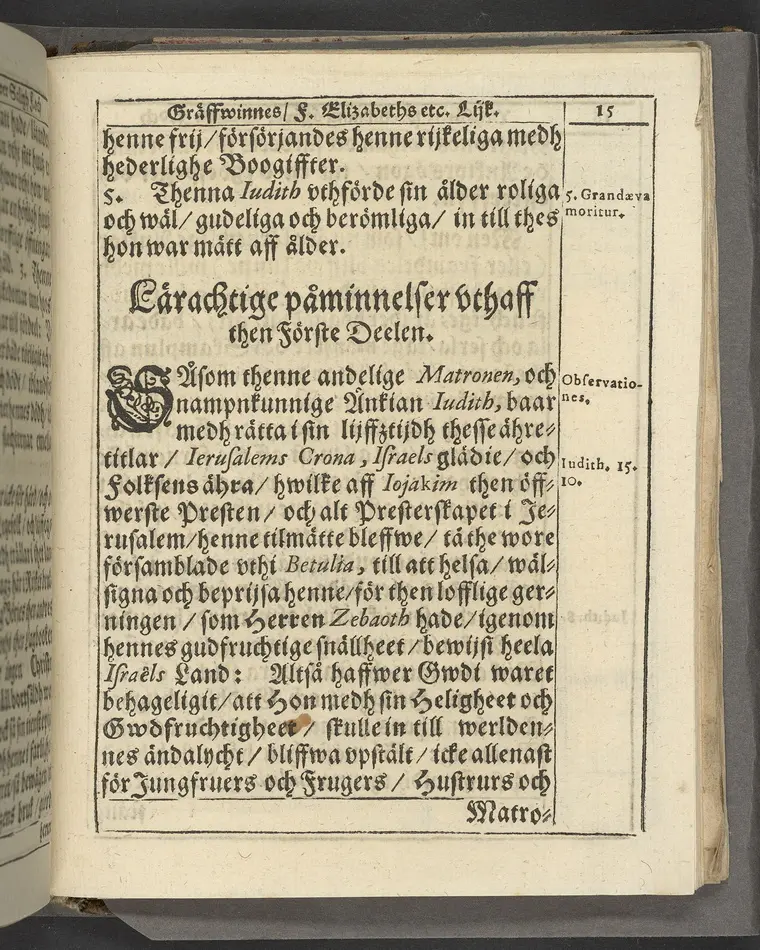 Gräffwinnes/ F. Elizabeths etc. Lijk.
15
henne frij/försörjandes henne rijkeliga medh
hederlighe Boogiffter.
5. Thenna Iudith vthförde sin ålder roliga
och wäl/ gudeliga och berömliga/ in till thes
hon war mätt aff ålder.
5. Grandæva
moritur.
Lärachtige påminnelser vthaff
then Förste Deelen.
SÅsom thenne andelige Matronen, och
nampnkunnige Änkian Iudith, baar
medh rätta i sin lijffztijdh thesse ähre-
titlar / Ierusalems Crona, Israels glädie/ och
Folksens ähra/ hwilke aff Iojakim then öff-
werste Presten/ och alt Presterskapet i Je-
rusalem/henne tilmätte bleffwe/ tå the wore
församblade vthi Betulia, till att helsa/ wäl-
signa och beprijsa henne/för then lofflige ger-
ningen / som Herren Zebaoth hade/igenom
hennes gudfruchtige snällheet/bewijst heela
Israëls Land: Altså haffwer Gwdi waret
behageligit/att Hon medh sin Heligheet och
Gwdfruchtigheet / skulle in till werlden-
nes ändalycht / bliffwa vpstält/icke allenast
för Jungfruers och Frugers / Hustrurs och
Matro-
Observatio-
nes.
Iudith. 15.
10.